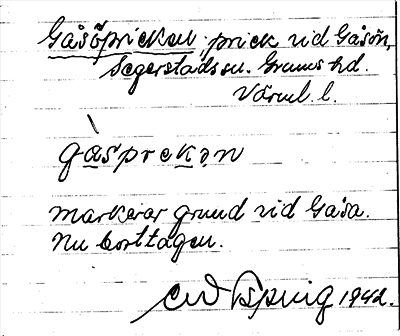 Gåsöpricken, prick vid Gåsön,
Segerstads sn. Grums hd.
Värml. l.
gåsprekən
markerar grund vid Gåsa.
Nu borttagen.
1942.